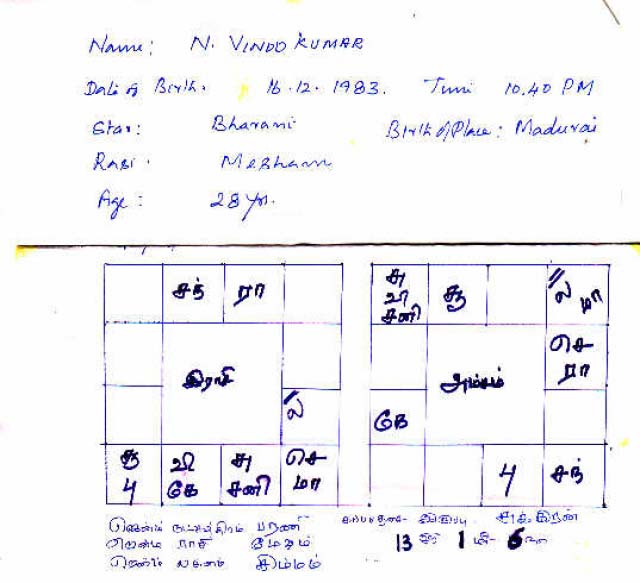 Name: N. VINDO KUMAR
Date of Birth. 16.12.1983. Time 10.40 PM
Star: Bharani Birth of Place: Madurai
Rasi. Mesham
Age: 28 Yrs.
சந் ரா
இராசி
ல
கு வி சு செ
4 கே சனி மா
சு சூ ல மா
வி
சனி
செ
ரா
அம்சம்
கே
4 சந்
ஜென்ம நட்சத்திரம் பரணி
ஜென்ம ராசி மேஷம்
ஜென்ம லக்னம் சிம்மம்
இருப்பு சுக்கிரன்
13 1 6